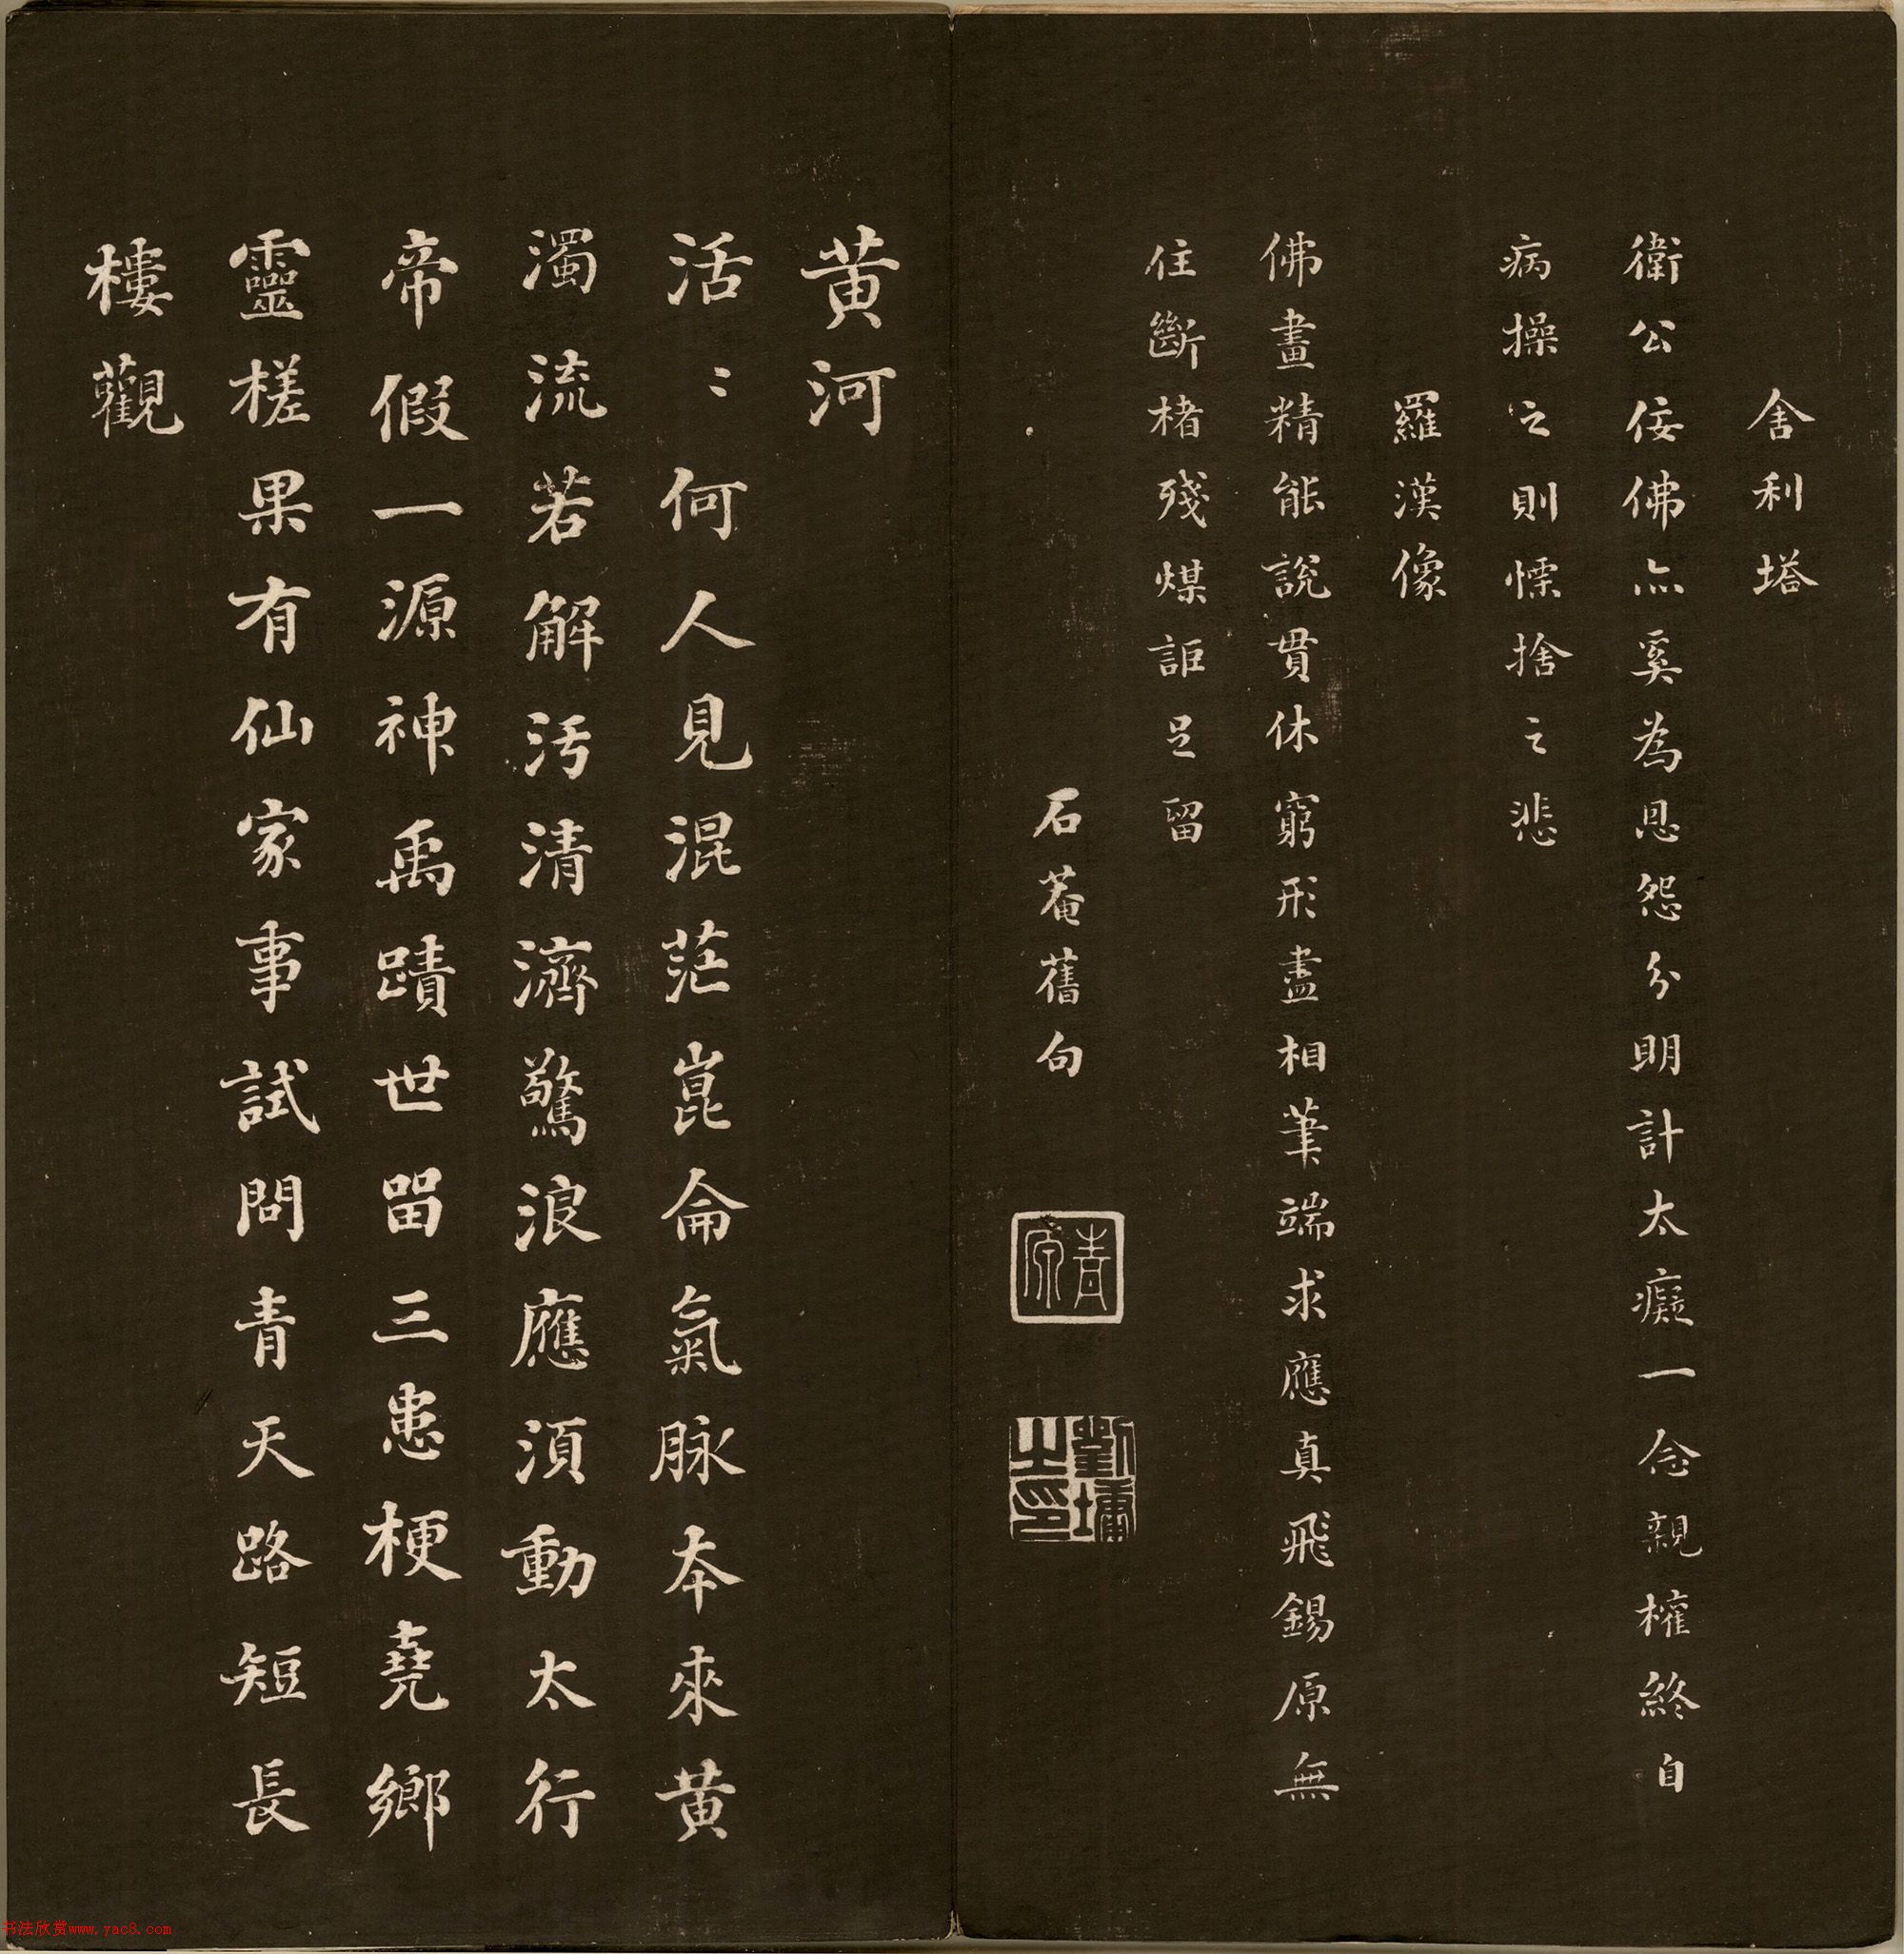 舍利塔
衛公佞佛亦奚為恩怨分明計太癡一念親權終自
病操之則慄捨之悲
羅漢像
佛畫精能說貫休窮形盡相筆端求應真飛錫原無
住斷楮殘煤詎足留
石菴舊句
青原
劉墉之印
黄河
活〻何人見混茫崑侖氣脉本來黄
濁流若解汚清濟驚浪應須動太行
帝假一源神禹蹟世留三患梗堯鄉
靈槎果有仙家事試問青天路短長
樓觀
书法欣赏www.yac8.com